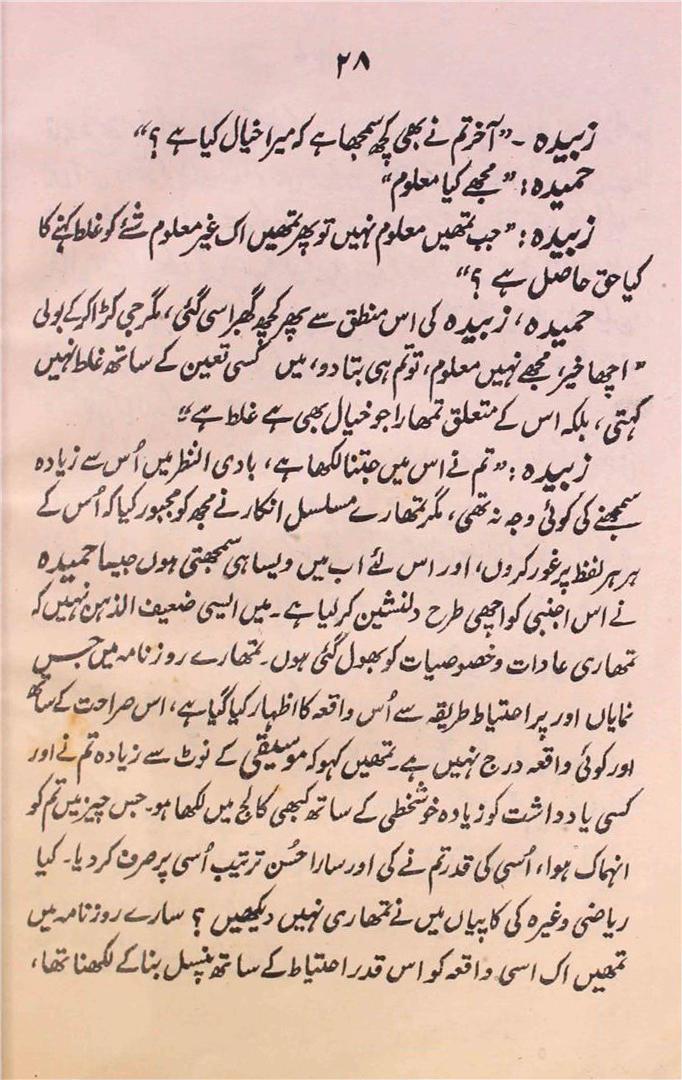 ۲۸
زبیدہ ۔ ”آخر تم نے بھی کچھ سمجھا ہے کہ میرا خیال کیا ہے ؟“
حمیدہ : ”مجھے کیا معلوم“
زبیدہ : ”جب تمھیں معلوم نہیں تو پھر تمھیں اک غیر معلوم شئے کو غلط کہنے کا
کیا حق حاصل ہے ؟“
حمیدہ ، زبیدہ کی اس منطق سے پھر کچھ گھبرا سی گئی ، مگر جی کڑا کر کے بولی
”اچھا خیر ، مجھے نہیں معلوم ، تو تم ہی بتا دو ، میں کسی تعین کے ساتھ غلط نہیں
کہتی ، بلکہ اس کے متعلق تمھارا جو خیال بھی ہے غلط ہے“
زبیدہ : ”تم نے اس میں جتنا لکھا ہے ، بادی النظر میں اُس سے زیادہ
سمجھنے کی کوئی وجہ نہ تھی ، مگر تمھارے مسلسل انکار نے مجھ کو مجبور کیا کہ اُس کے
ہر ہر لفظ پر غور کروں ، اور اس لئے اب میں ویسا ہی سمجھتی ہوں جیسا حمیدہ
نے اس اجنبی کو اچھی طرح دلنشین کر لیا ہے ۔ میں ایسی ضعیف الذہن نہیں کہ
تمھاری عادات و خصوصیات کو بھول گئی ہوں ۔ تمھارے روزنامہ میں جس
نمایاں اور پر احتیاط طریقہ سے اُس واقعہ کا اظہار کیا گیا ہے ، اس صراحت کے ساتھ
اور کوئی واقعہ درج نہیں ہے ۔ تمھیں کہو کہ موسیقی کے نوٹ سے زیادہ تم نے اور
کسی یادداشت کو زیادہ خوشخطی کے ساتھ کبھی کالج میں لکھا ہو ۔ جس چیز میں تم کو
انہماک ہوا ، اُسی کی قدر تم نے کی اور سارا حُسن ترتیب اُسی پر صرف کر دیا ۔ کیا
ریاضی وغیرہ کی کاپیاں میں نے تمھاری نہیں دیکھیں ؟ سارے روزنامہ میں
تمھیں اک اسی واقعہ کو اس قدر احتیاط کے ساتھ پنسل بنا کے لکھنا تھا ،